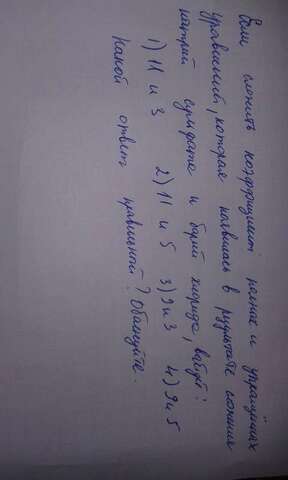 Если сложить коэффициент полных и упрощённых
уравнений, которая появилась в результате слияния
натрий сульфата и барий хлорида, выйдет:
1) 11 и 3 2) 11 и 5 3) 9 и 3 4) 9 и 5
Какой ответ правильный? Обоснуйте.